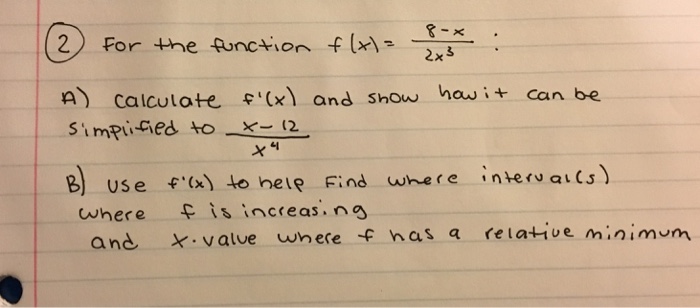 2 For the function f(x) = 8-x / 2x³ :
A) calculate f'(x) and show how it can be
simplified to x-12 / x⁴
B) use f'(x) to help Find where interval(s)
where f is increasing
and x-value where f has a relative minimum